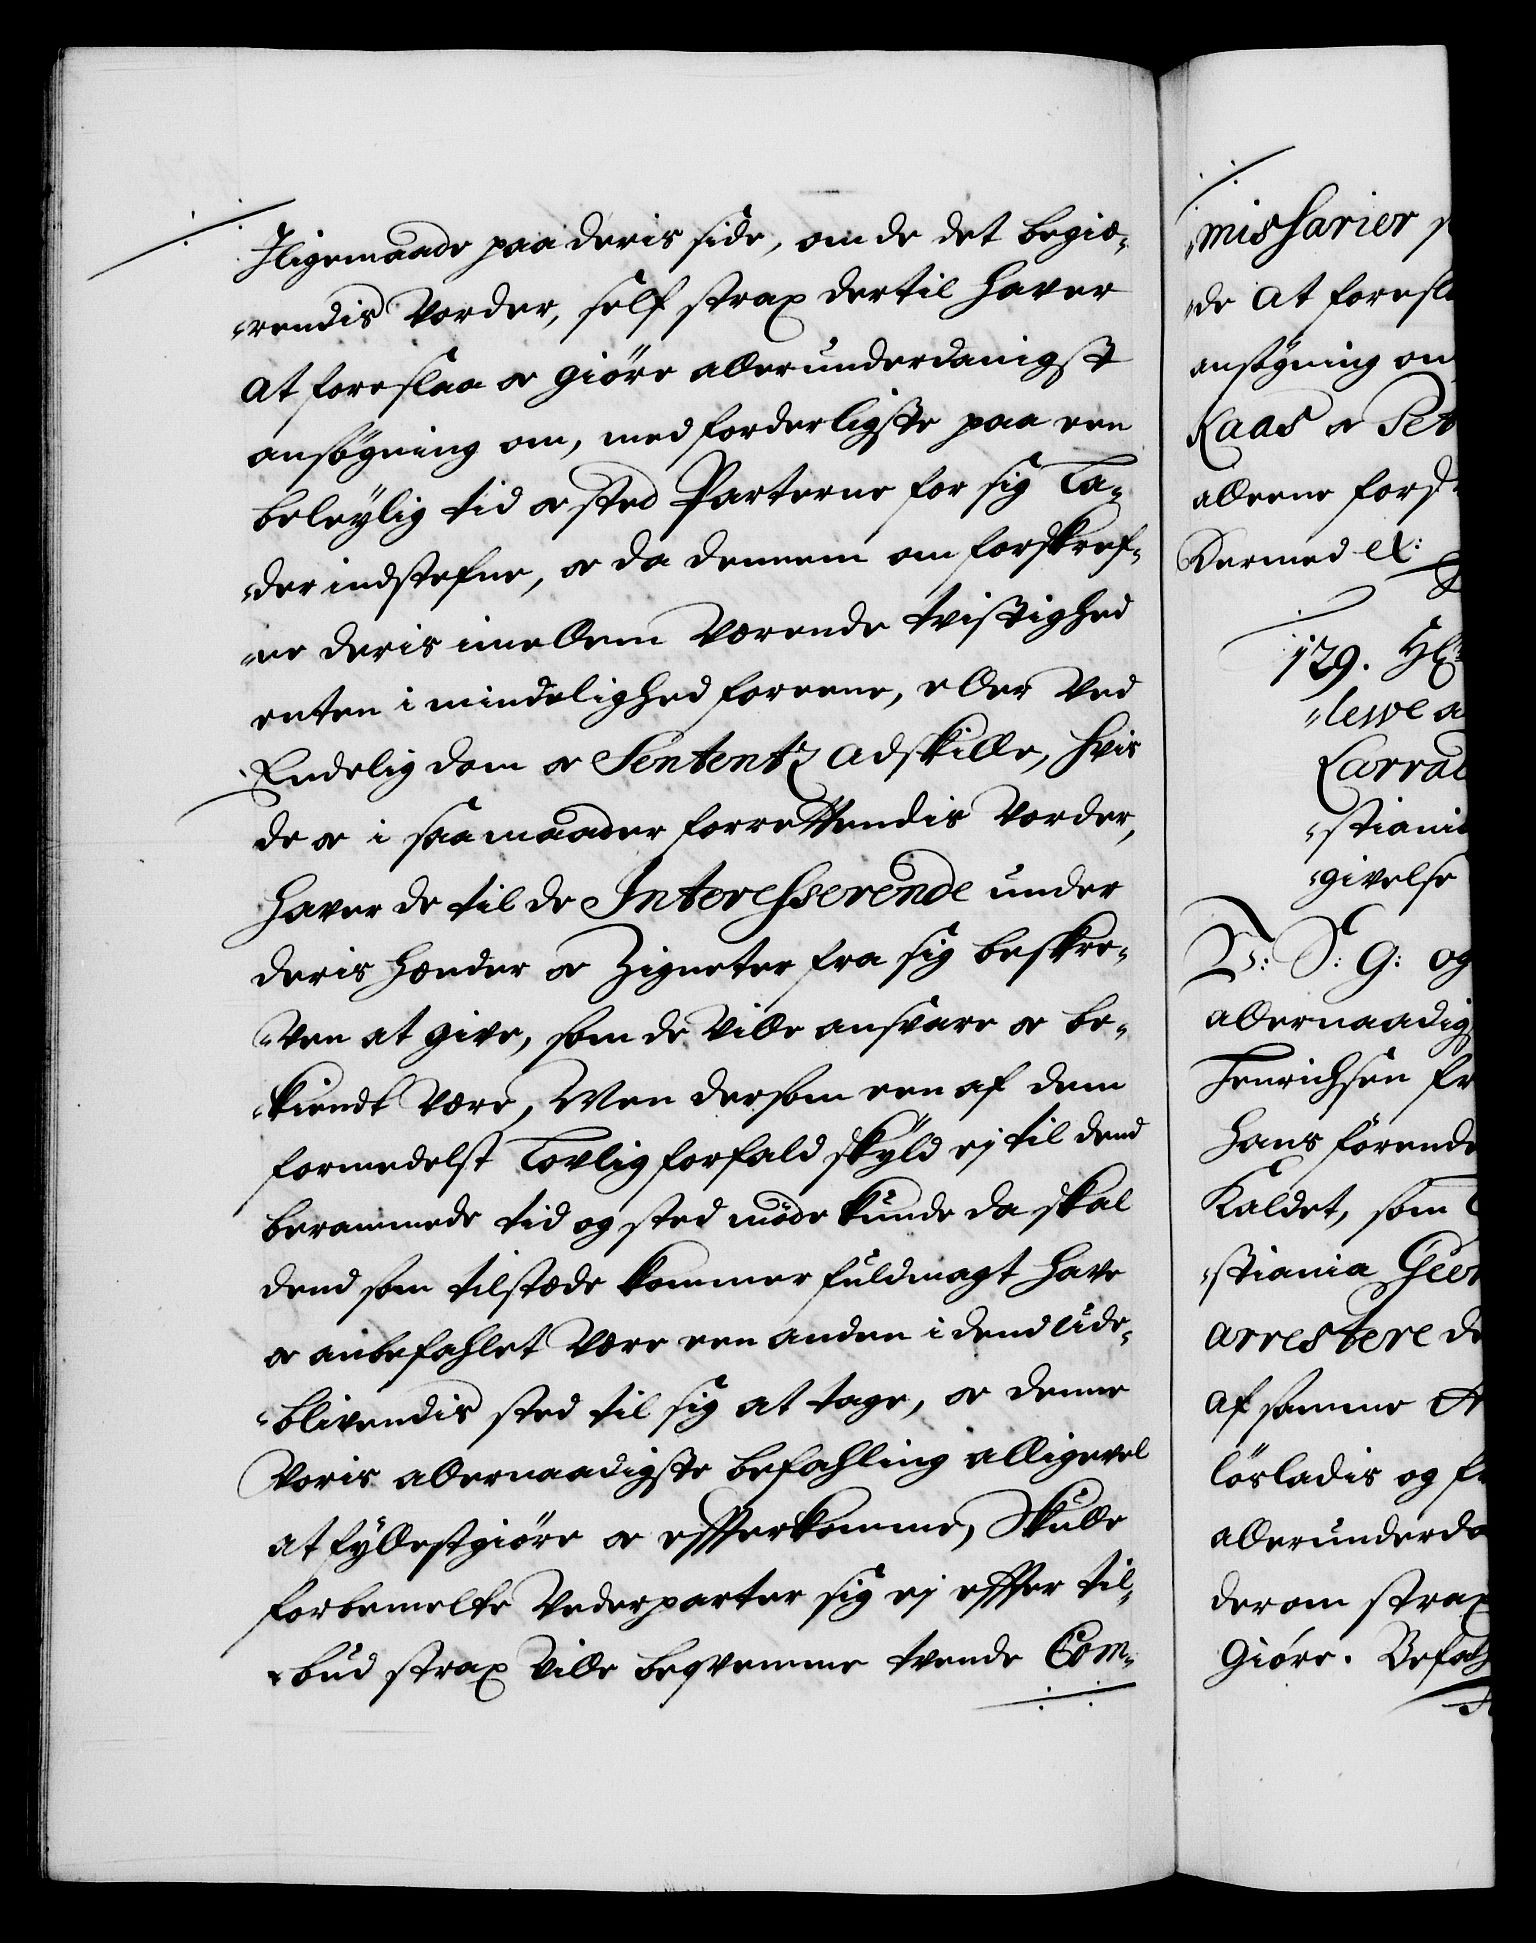 Jligemaade paa deris side, om de det begiæ-
rendis vorder, self strax dertil haver
at foreslaa oc giöre allerunderdanigst
ansögning om, med forderligste paa een
beleÿlig tid oc sted Parterne for sig La-
der indstefne, oc da dennem om forskref-
ne deris imellem værende tvistighed
enten i mindelighed foreene, eller ved
Endelig dom oc Sententz adskille, hvis
de oc i saa maader forrettendis vorder,
haver de til de Interesserende under
deris hænder oc Zigneter fra sig beskre-
ven at give, som de ville ansvare oc be-
kiendt være, Men dersom een af dem
formedelst Lovlig forfald skÿld ej til dend
berammede tid og sted möde kunde da skal
dend som tilstæde kommer fuldmagt have
oc anbefahlet være een anden i dend ude-
blivendis sted til sig at tage, oc denne
Voris allernaadigste befahling alligevel
at fyllestgiöre oc effterkomme, Skulle
forbemelte Vederparter sig ej effter til-
bud strax ville beqvemme tvende Com-
missarier
de at foresl
ansögning om
Kaas oc Pet
alleene ford
Dermed &:
129.
Carral
stiani
givelse
V: S: G: og
allernaadig
Henrichsen fr
hans förende
Kaldet, som
stiania
arrestere de
af samme
lösladis og
allerunderda
derom strax
Giöre. Befahl